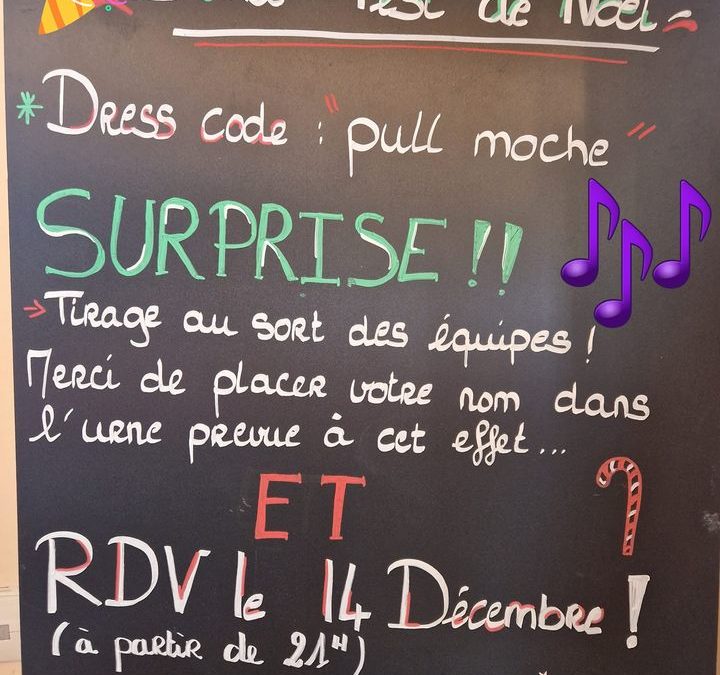 Test de Noël
*Dress code : "pull moche"
SURPRISE !!
→Tirage au sort des équipes !
Merci de placer votre nom dans
l'urne prevue à cet effet...
ET
RDV le 14 Décembre !
(à partir de 21H)